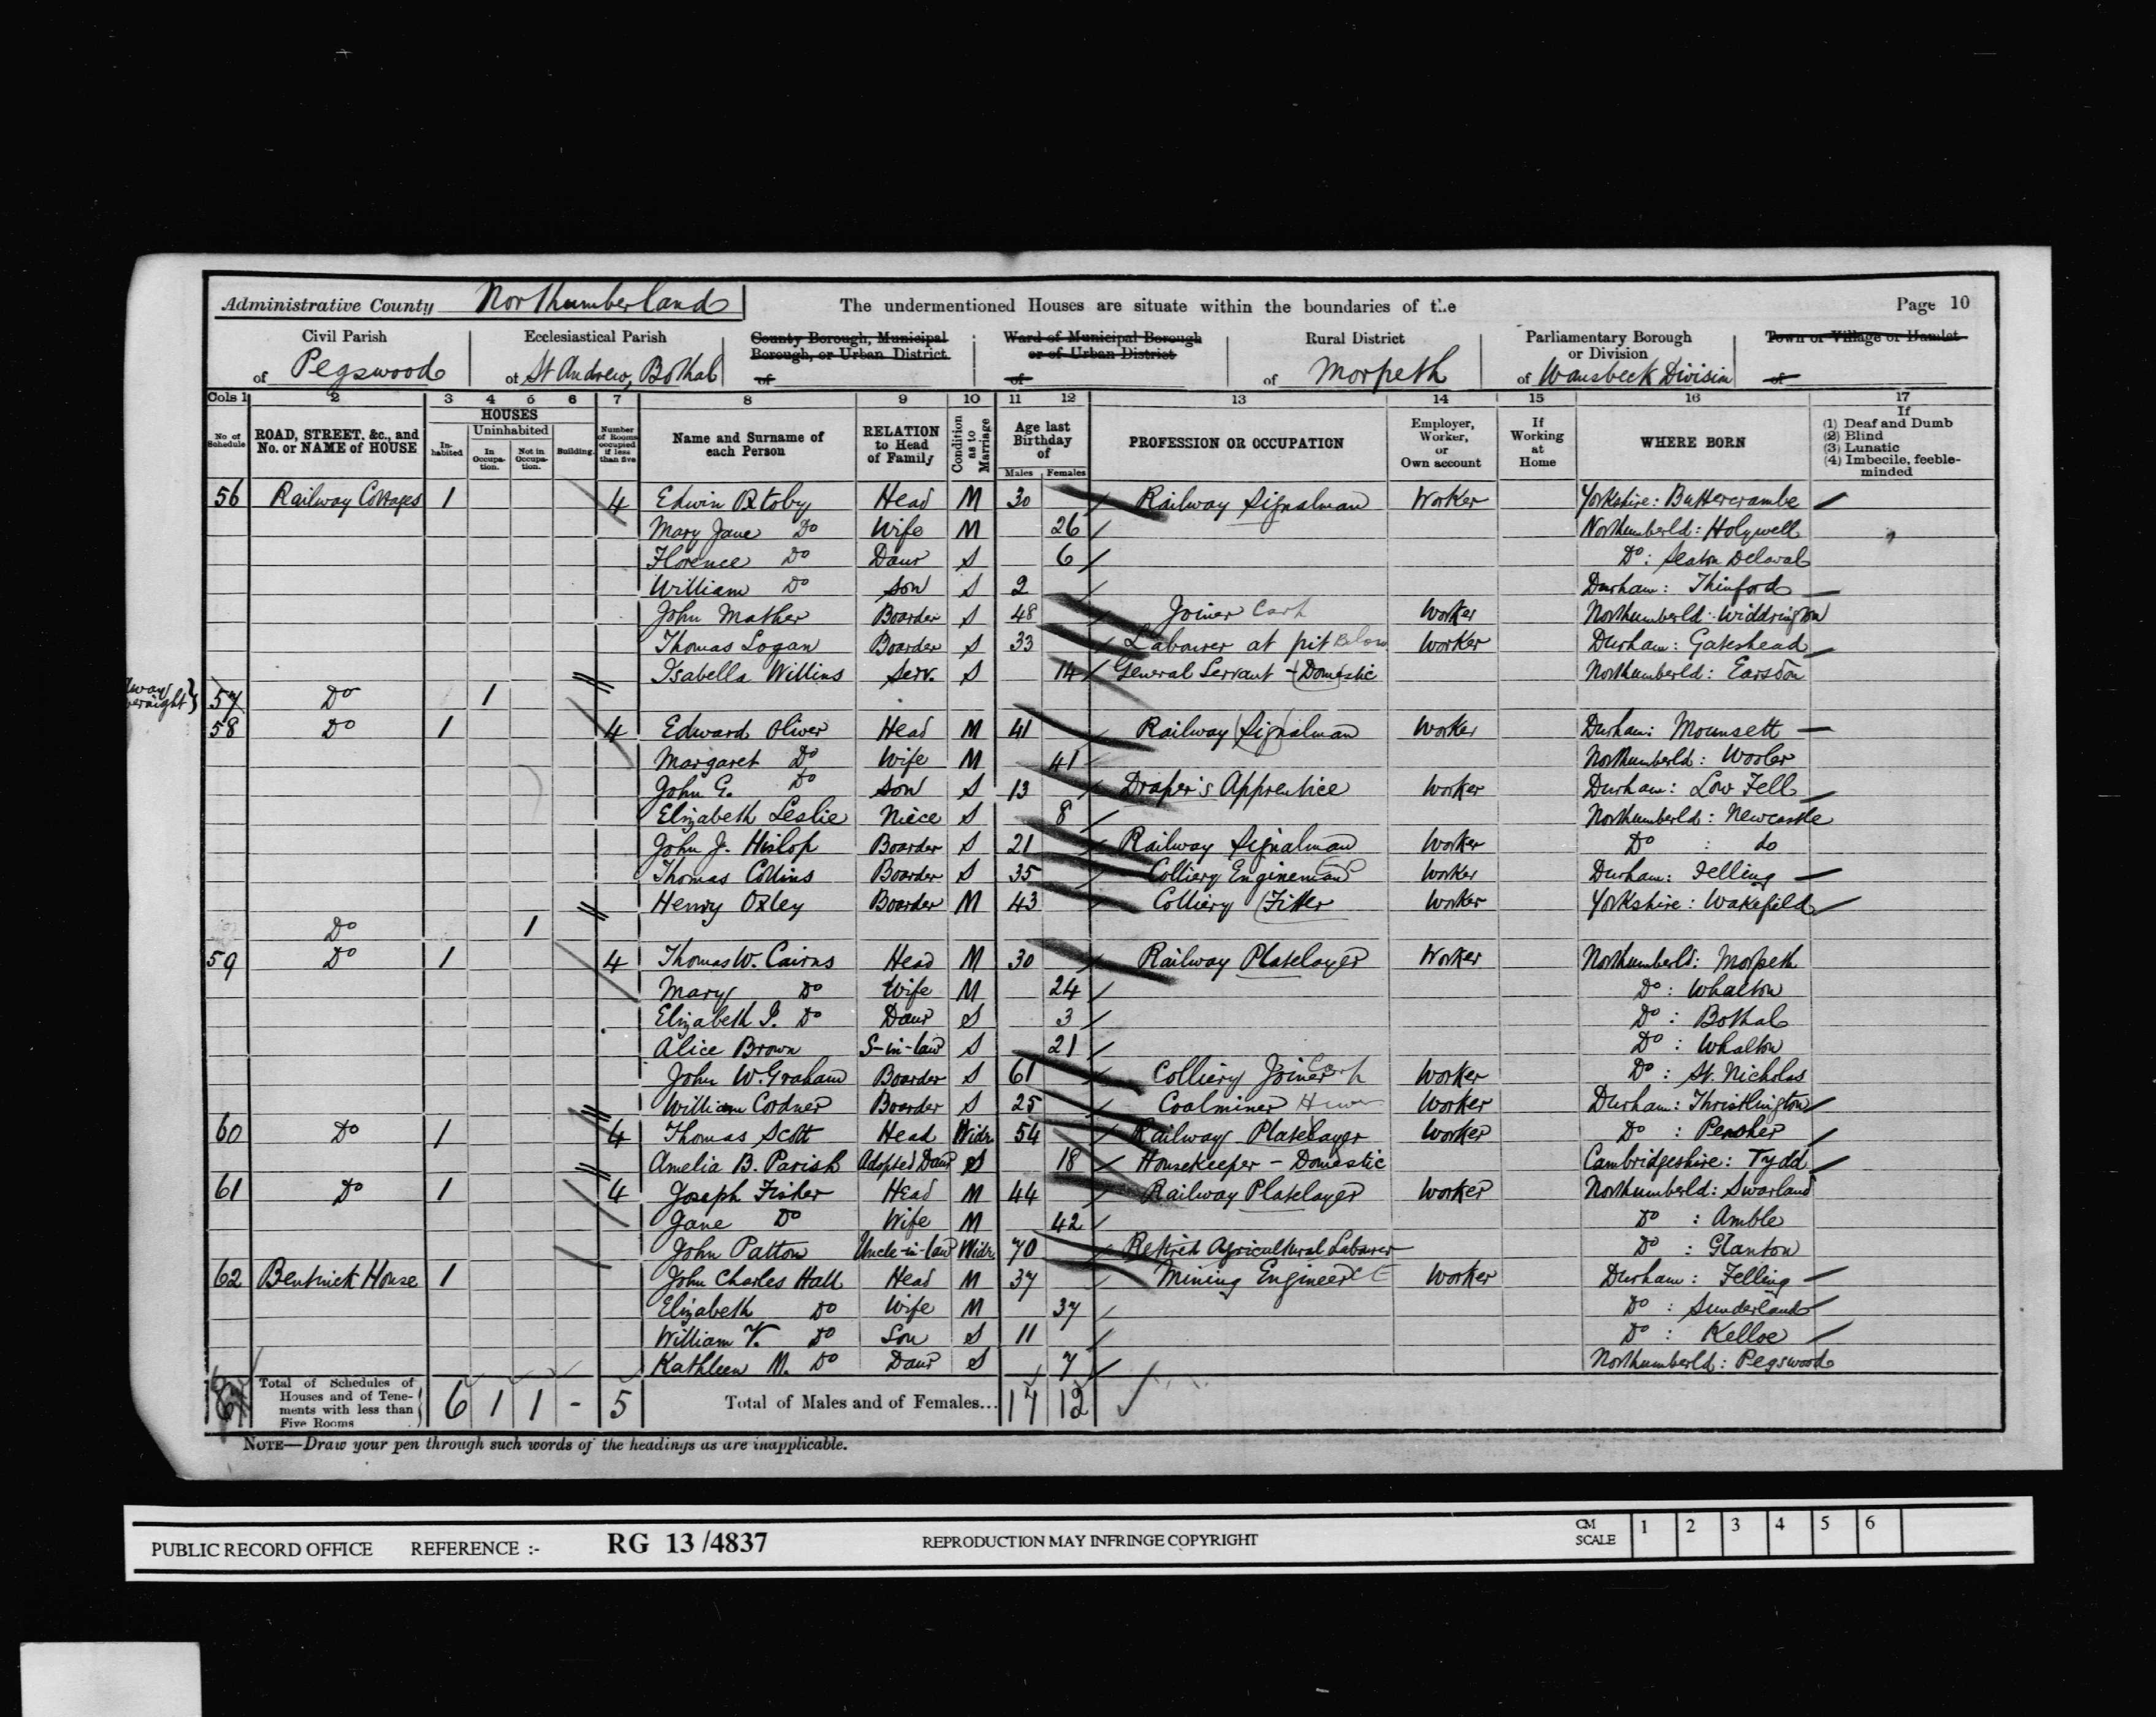 Administrative County Northumberland The undermentioned Houses are situate within the boundaries of the Page 10
Civil Parish Ecclesiastical Parish County Borough, Municipal Borough, or Urban District Ward of Municipal Borough or of Urban District Rural District Parliamentary Borough or Division Town or Village or Hamlet
of Pegswood of St Andrew, Bothal of of of Morpeth of Wansbeck Division of
Cols 1 2 3 4 5 6 7 8 9 10 11 12 13 14 15 16 17
No of Schedule ROAD, STREET, &c., and No. or NAME of HOUSE HOUSES Inhabited Uninhabited In Occupation. Not in Occupation. Building. Number of Rooms occupied if less than five Name and Surname of each Person RELATION to Head of Family Condition as to Marriage Age last Birthday of Males Females PROFESSION OR OCCUPATION Employer, Worker, or Own account If Working at Home WHERE BORN If (1) Deaf and Dumb (2) Blind (3) Lunatic (4) Imbecile, feeble-minded
56 Railway Cottages 1 4 Edwin Oxtoby Head M 30 Railway Signalman Worker Yorkshire: Buttercrambe
Mary Jane Do Wife M 26 Northumberld: Holywell
Florence Do Daur S 6 Do: Seaton Delaval
William Do Son S 2 Durham: Thinford
John Mather Boarder S 48 Joiner Carp Worker Northumberld: Widdrington
Thomas Logan Boarder S 33 Labourer at pit Below Worker Durham: Gateshead
Isabella Willins Serv. S 14 General Servant - Domestic Northumberld: Earsdon
57 Do 1
58 Do 1 4 Edward Oliver Head M 41 Railway Signalman Worker Durham: Mounsett
Margaret Do Wife M 41 Northumberld: Wooler
John G. Do Son S 13 Draper's Apprentice Worker Durham: Low Fell
Elizabeth Leslie Niece S 8 Northumberld: Newcastle
John J. Hislop Boarder S 21 Railway Signalman Worker Do : do
Thomas Collins Boarder S 35 Colliery Engineman Worker Durham: Felling
Henry Oxley Boarder M 43 Colliery Fitter Worker Yorkshire: Wakefield
Do 1
59 Do 1 4 Thomas W. Cairns Head M 30 Railway Platelayer Worker Northumberld: Morpeth
Mary Do Wife M 24 Do: Whalton
Elizabeth I. Do Daur S 3 Do: Bothal
Alice Brown S-in-law S 21 Do: Whalton
John W. Graham Boarder S 61 Colliery Joiner Carp Worker Do: St. Nicholas
William Cordner Boarder S 25 Coalminer Hewer Worker Durham: Thristlington
60 Do 1 4 Thomas Scott Head Widr. 54 Railway Platelayer Worker Do: Pensher
Amelia B. Parish Adopted Daur S 18 Housekeeper - Domestic Cambridgeshire: Tydd
61 Do 1 4 Joseph Fisher Head M 44 Railway Platelayer Worker Northumberld: Swarland
Jane Do Wife M 42 Do: Amble
John Patton Uncle-in-law Widr. 70 Retired Agricultural Labourer Do: Glanton
62 Bentinck House 1 John Charles Hall Head M 37 Mining Engineer CE Worker Durham: Felling
Elizabeth Do Wife M 37 Do: Sunderland
William V. Do Son S 11 Do: Kelloe
Kathleen M. Do Daur S 7 Northumberld: Pegswood
Total of Schedules of Houses and of Tenements with less than Five Rooms 6 1 1 - 5 Total of Males and of Females... 17 12
NOTE—Draw your pen through such words of the headings as are inapplicable.
PUBLIC RECORD OFFICE REFERENCE :- RG 13/4837 REPRODUCTION MAY INFRINGE COPYRIGHT CM SCALE 1 2 3 4 5 6